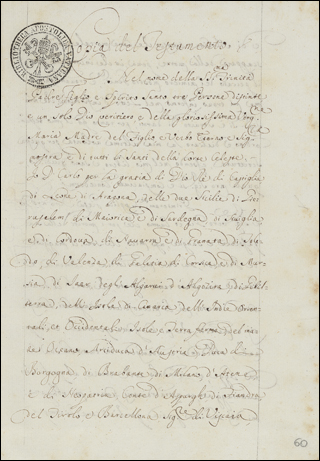 BIBLIOTHECA APOSTOLICA VATICANA
Copia del Testamento
Nel nome della SS.ma Trinità
Padre, Figlio e Spirito Santo tre Persone distinte
e un solo Dio vero e della gloriosissima Vergine
Maria Madre del Figlio e Verbo Eterno e Sig.ra
nostra e di tutti li Santi della Corte celeste, Io
D. Carlo per la grazia di Dio Rè di Castiglia
di Leone di Aragona, delle due Sicilie di Gieru
salem di Maiorica e di Sardegna di Siviglia
e di Cordova di Navarra e di Granata di Tole
do, di Valenza di Galizia di Corsica e di Mur
sia di Jaen degli Algarvi di Algezira di Gibil
terra, delle Isole di Canaria delle Indie Orien
tali, et Occidentali, Isole e Terra ferma del ma
re Oceano, Arciduca di Austria Duca di
Borgogna, di Brabante di Milano d'Atene
e di Neopatria Conte d'Aspurghi di Fiandra
del Tirolo e Barcellona Sig.re di Viscaia
60